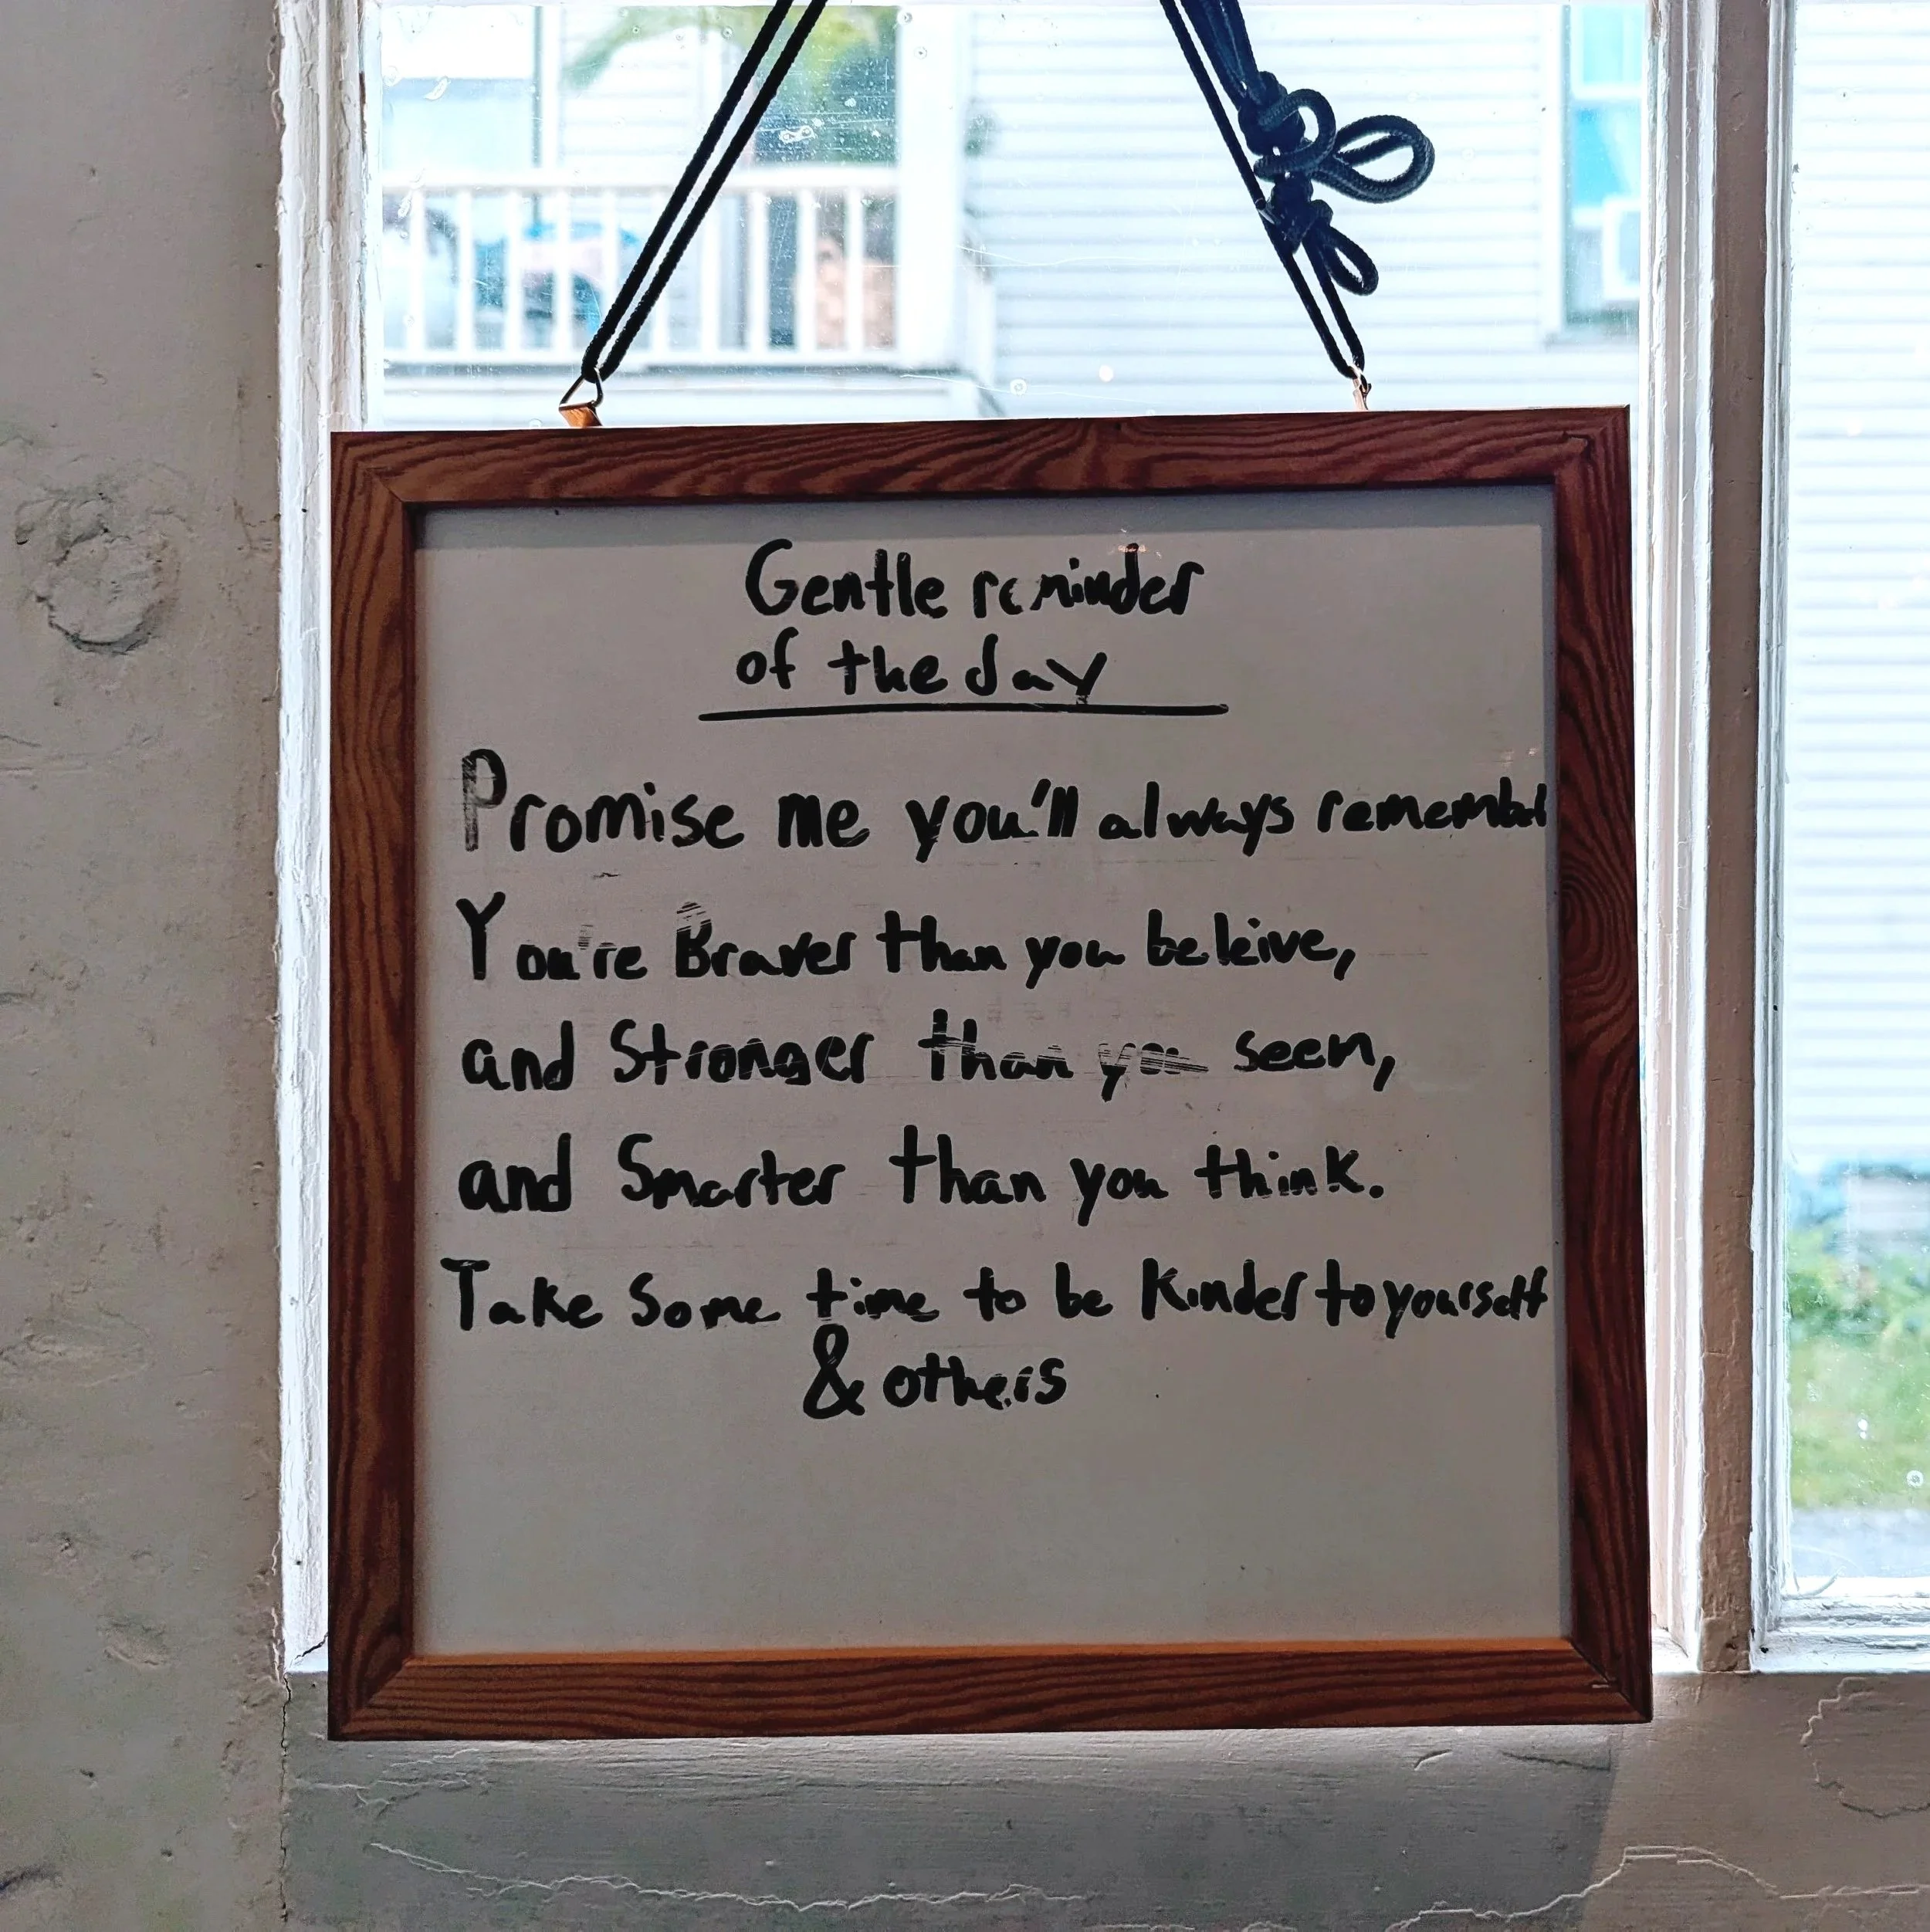 Gentle reminder
of the day
Promise me you'll always remember
You're Braver than you beleive,
and Stronger than you seen,
and Smarter than you think.
Take Some time to be Kinder to yourself
& others